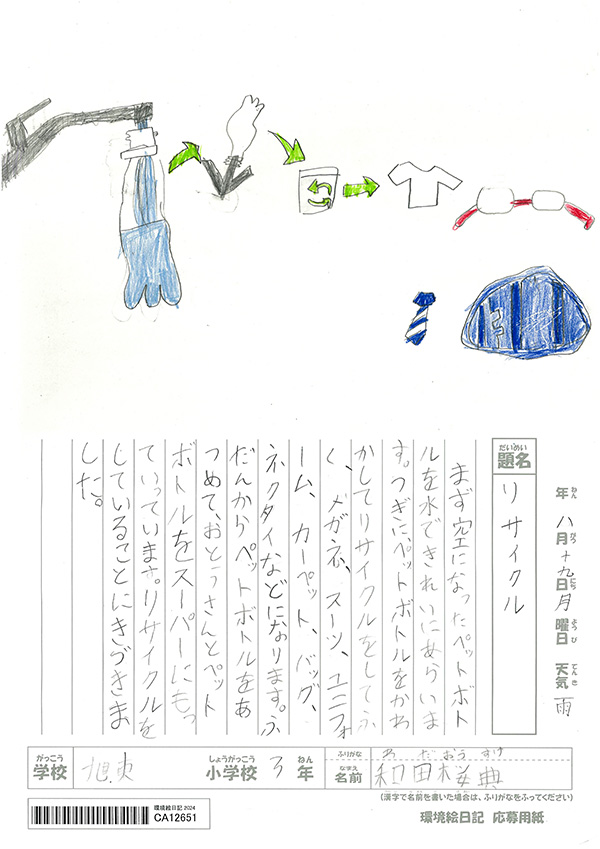 年 八月十九日月曜日 天気 雨
ねん がつ にち ようび てんき
だいめい
題名
リサイクル
まず空になったペットボト
ルを水できれいにあらいま
す。つぎに、ペットボトルをかわ
かしてリサイクルをしてふ
く、メガネ、スーツ、ユニフォ
ーム、カーペット、バッグ、
ネクタイなどになります。ふ
だんからペットボトルをあ
つめて、おとうさんとペット
ボトルをスーパーにもっ
ていっています。リサイクルを
じていることにきづきま
した。
がっこう
学校
旭東
しょうがっこう
小学校
3
ねん
年
ふりがな
わだおうすけ
なまえ
名前
和田桜典
(漢字で名前を書いた場合は、ふりがなをふってください)
環境絵日記 2024
CA12651
環境絵日記 応募用紙